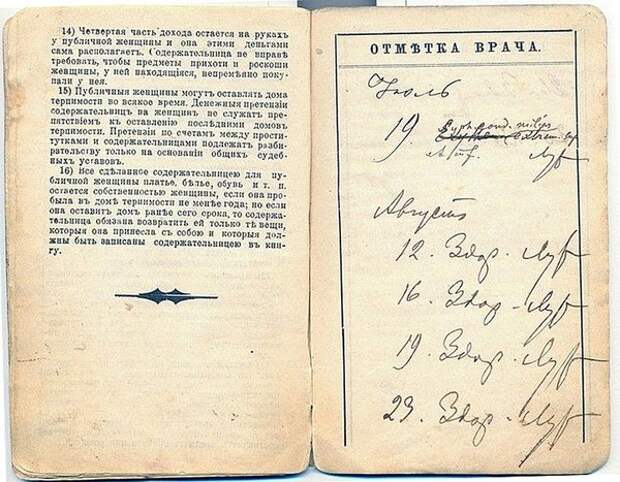 14) Четвертая часть дохода остается на рукахъ
у публичной женщины и она этими деньгами
сама располагаетъ. Содержательница не вправѣ
требовать, чтобы предметы прихоти и роскоши
женщины, у ней находящiяся, непремѣнно поку-
пали у нея.
15) Публичныя женщины могутъ оставлять дома
терпимости во всякое время. Денежныя претензiи
содержательницъ на женщинъ не служатъ пре-
пятствiемъ къ оставленiю послѣдними домовъ
терпимости. Претензiи по счетамъ между прос-
титутками и содержательницами подлежатъ разби-
рательству только на основанiи общихъ судеб-
ныхъ уставовъ.
16) Все сдѣланное содержательницею для пу-
бличной женщины платье, бѣлье, обувь и т. п.
остается собственностью женщины, если она про-
была въ домѣ терпимости не менѣе года; но если
она оставитъ домъ ранѣе сего срока, то содержа-
тельница обязана возвратить ей только тѣ вещи,
которыя она принесла съ собою и которыя дол-
жны быть записаны содержательницею въ кни-
гу.
ОТМѢТКА ВРАЧА.
Iюль
19
Августъ
12. Здор.
16. Здор.
19. Здор.
23. Здор.